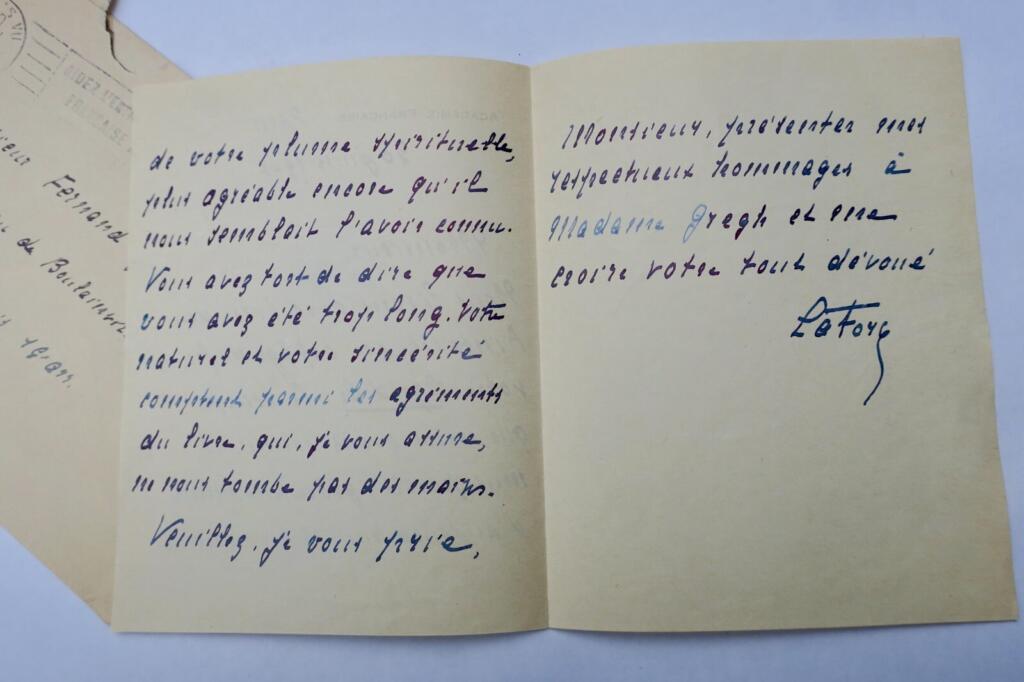 AIDEZ
FRANÇAISE
Fernand
de Boulainvil
ACADÉMIE FRANÇAISE
de votre plume spirituelle,
plus agréable encore qu'il
nous semblait l'avoir connu.
Vous avez tort de dire que
vous avez été trop long. Votre
naturel et votre sincérité
comptent parmi les agréments
du livre, qui, je vous assure,
ne nous tombe pas des mains.
Veuillez, je vous prie,
Monsieur, présenter mes
respectueux hommages à
Madame Gregh et me
croire votre tout dévoué
La Force